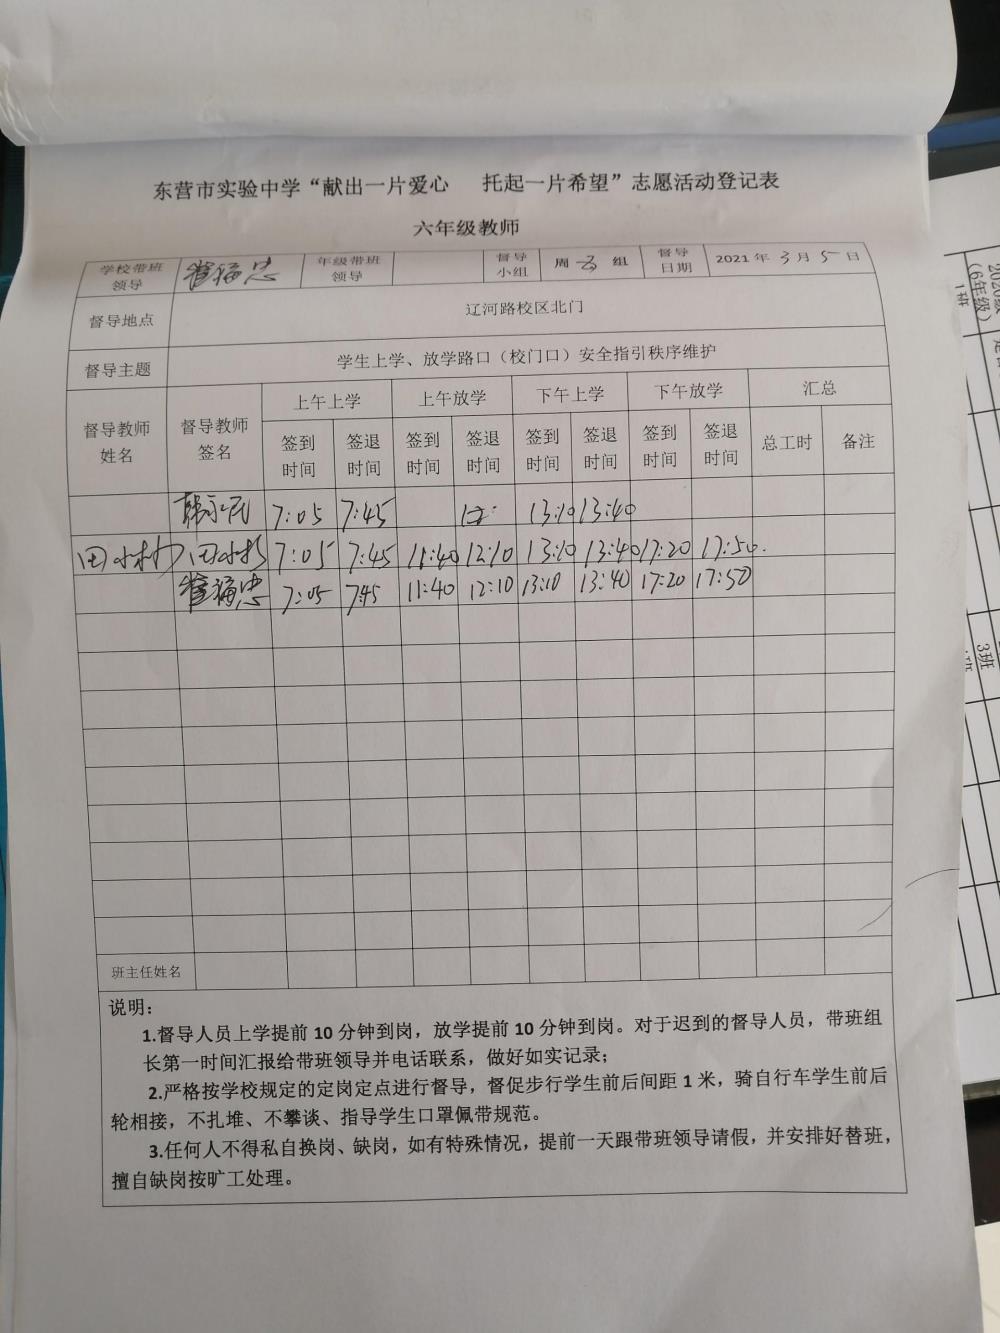 东营市实验中学“献出一片爱心 托起一片希望”志愿活动登记表
六年级教师
学校带班领导 崔福忠 年级带班领导 督导小组 周 五 组 督导日期 2021年3月5日
督导地点 辽河路校区北门
督导主题 学生上学、放学路口（校门口）安全指引秩序维护
督导教师姓名 督导教师签名 上午上学 上午放学 下午上学 下午放学 汇总
签到时间 签退时间 签到时间 签退时间 签到时间 签退时间 签到时间 签退时间 总工时 备注
7:05 7:45 13:10 13:40
7:05 7:45 11:40 12:10 13:10 13:40 17:20 17:50.
崔福忠 7:05 7:45 11:40 12:10 13:10 13:40 17:20 17:50
班主任姓名
说明：
1.督导人员上学提前10分钟到岗，放学提前10分钟到岗。对于迟到的督导人员，带班组
长第一时间汇报给带班领导并电话联系，做好如实记录；
2.严格按学校规定的定岗定点进行督导，督促步行学生前后间距1米，骑自行车学生前后
轮相接，不扎堆、不攀谈、指导学生口罩佩带规范。
3.任何人不得私自换岗、缺岗，如有特殊情况，提前一天跟带班领导请假，并安排好替班，
擅自缺岗按旷工处理。
（6年级）
1班
3班